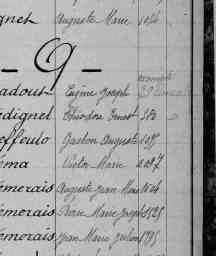 gnet Auguste Marie 1026
- O -
adout Eugène Joseph
dignel Théodore Ernest 580
effoulo Gaston Auguste
ma Victor Marie 1097
émorais Auguste Jean Marie 1504
émorais Pierre Marie Joseph 1525
émorais Jean Marie Julien 1795